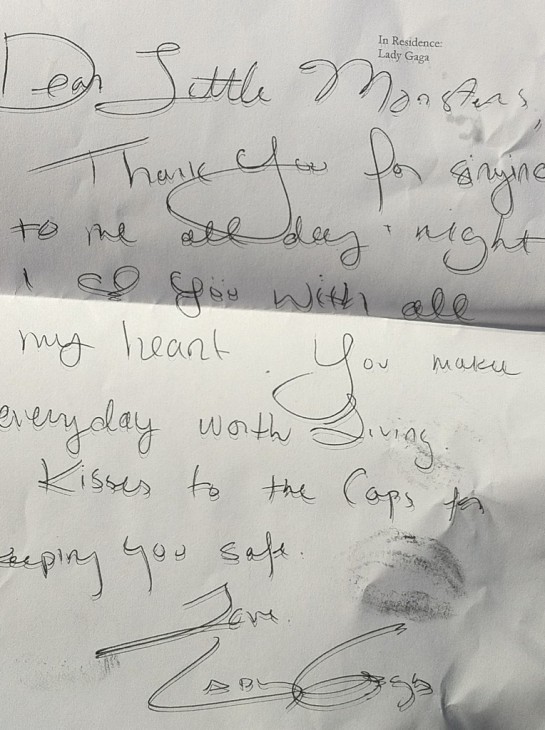 In Residence:
Lady Gaga
Dear Little Monsters,
Thank You for singing
to me all day + night
I ♡ you with all
my heart. You make
everyday worth Living.
Kisses to the Cops for
keeping you safe.
Love.
Lady Gaga